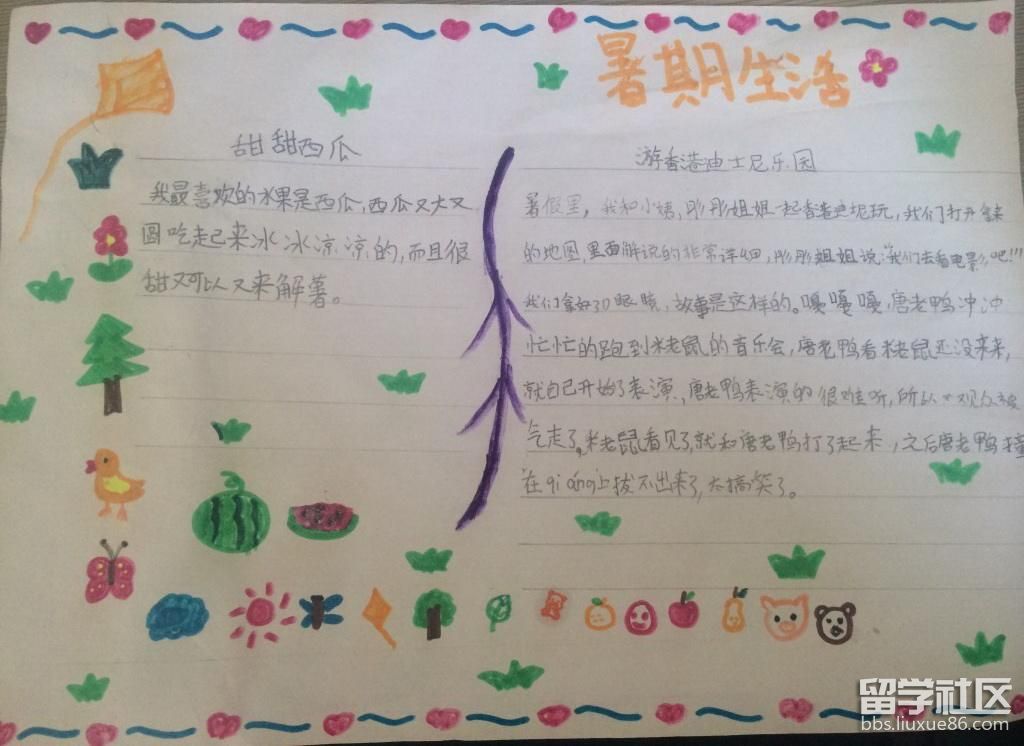 暑期生活
甜甜西瓜
我最喜欢的水果是西瓜,西瓜又大又
圆吃起来冰冰凉凉的,而且很
甜又可以又来解暑。
游香港迪士尼乐园
暑假里,我和小姨,彤彤姐姐一起香港迪尼玩,我们打开
的地图,里面解说的非常详细,彤彤姐姐说:“我们去看电影么吧!!!”
我们拿好3D眼镜,故事是这样的。嘎嘎嘎,唐老鸭冲冲
忙忙的跑到米老鼠的音乐会,唐老鸭看米老鼠还没来来,
就自己开始了表演、唐老鸭表演的很难听,所以观众被
气走了,米老鼠看见了,就和唐老鸭打了起来,之后唐老鸭撞
在qiáng上拔不出来了,太搞笑了。
留学社区
bbs.liuxue86.com